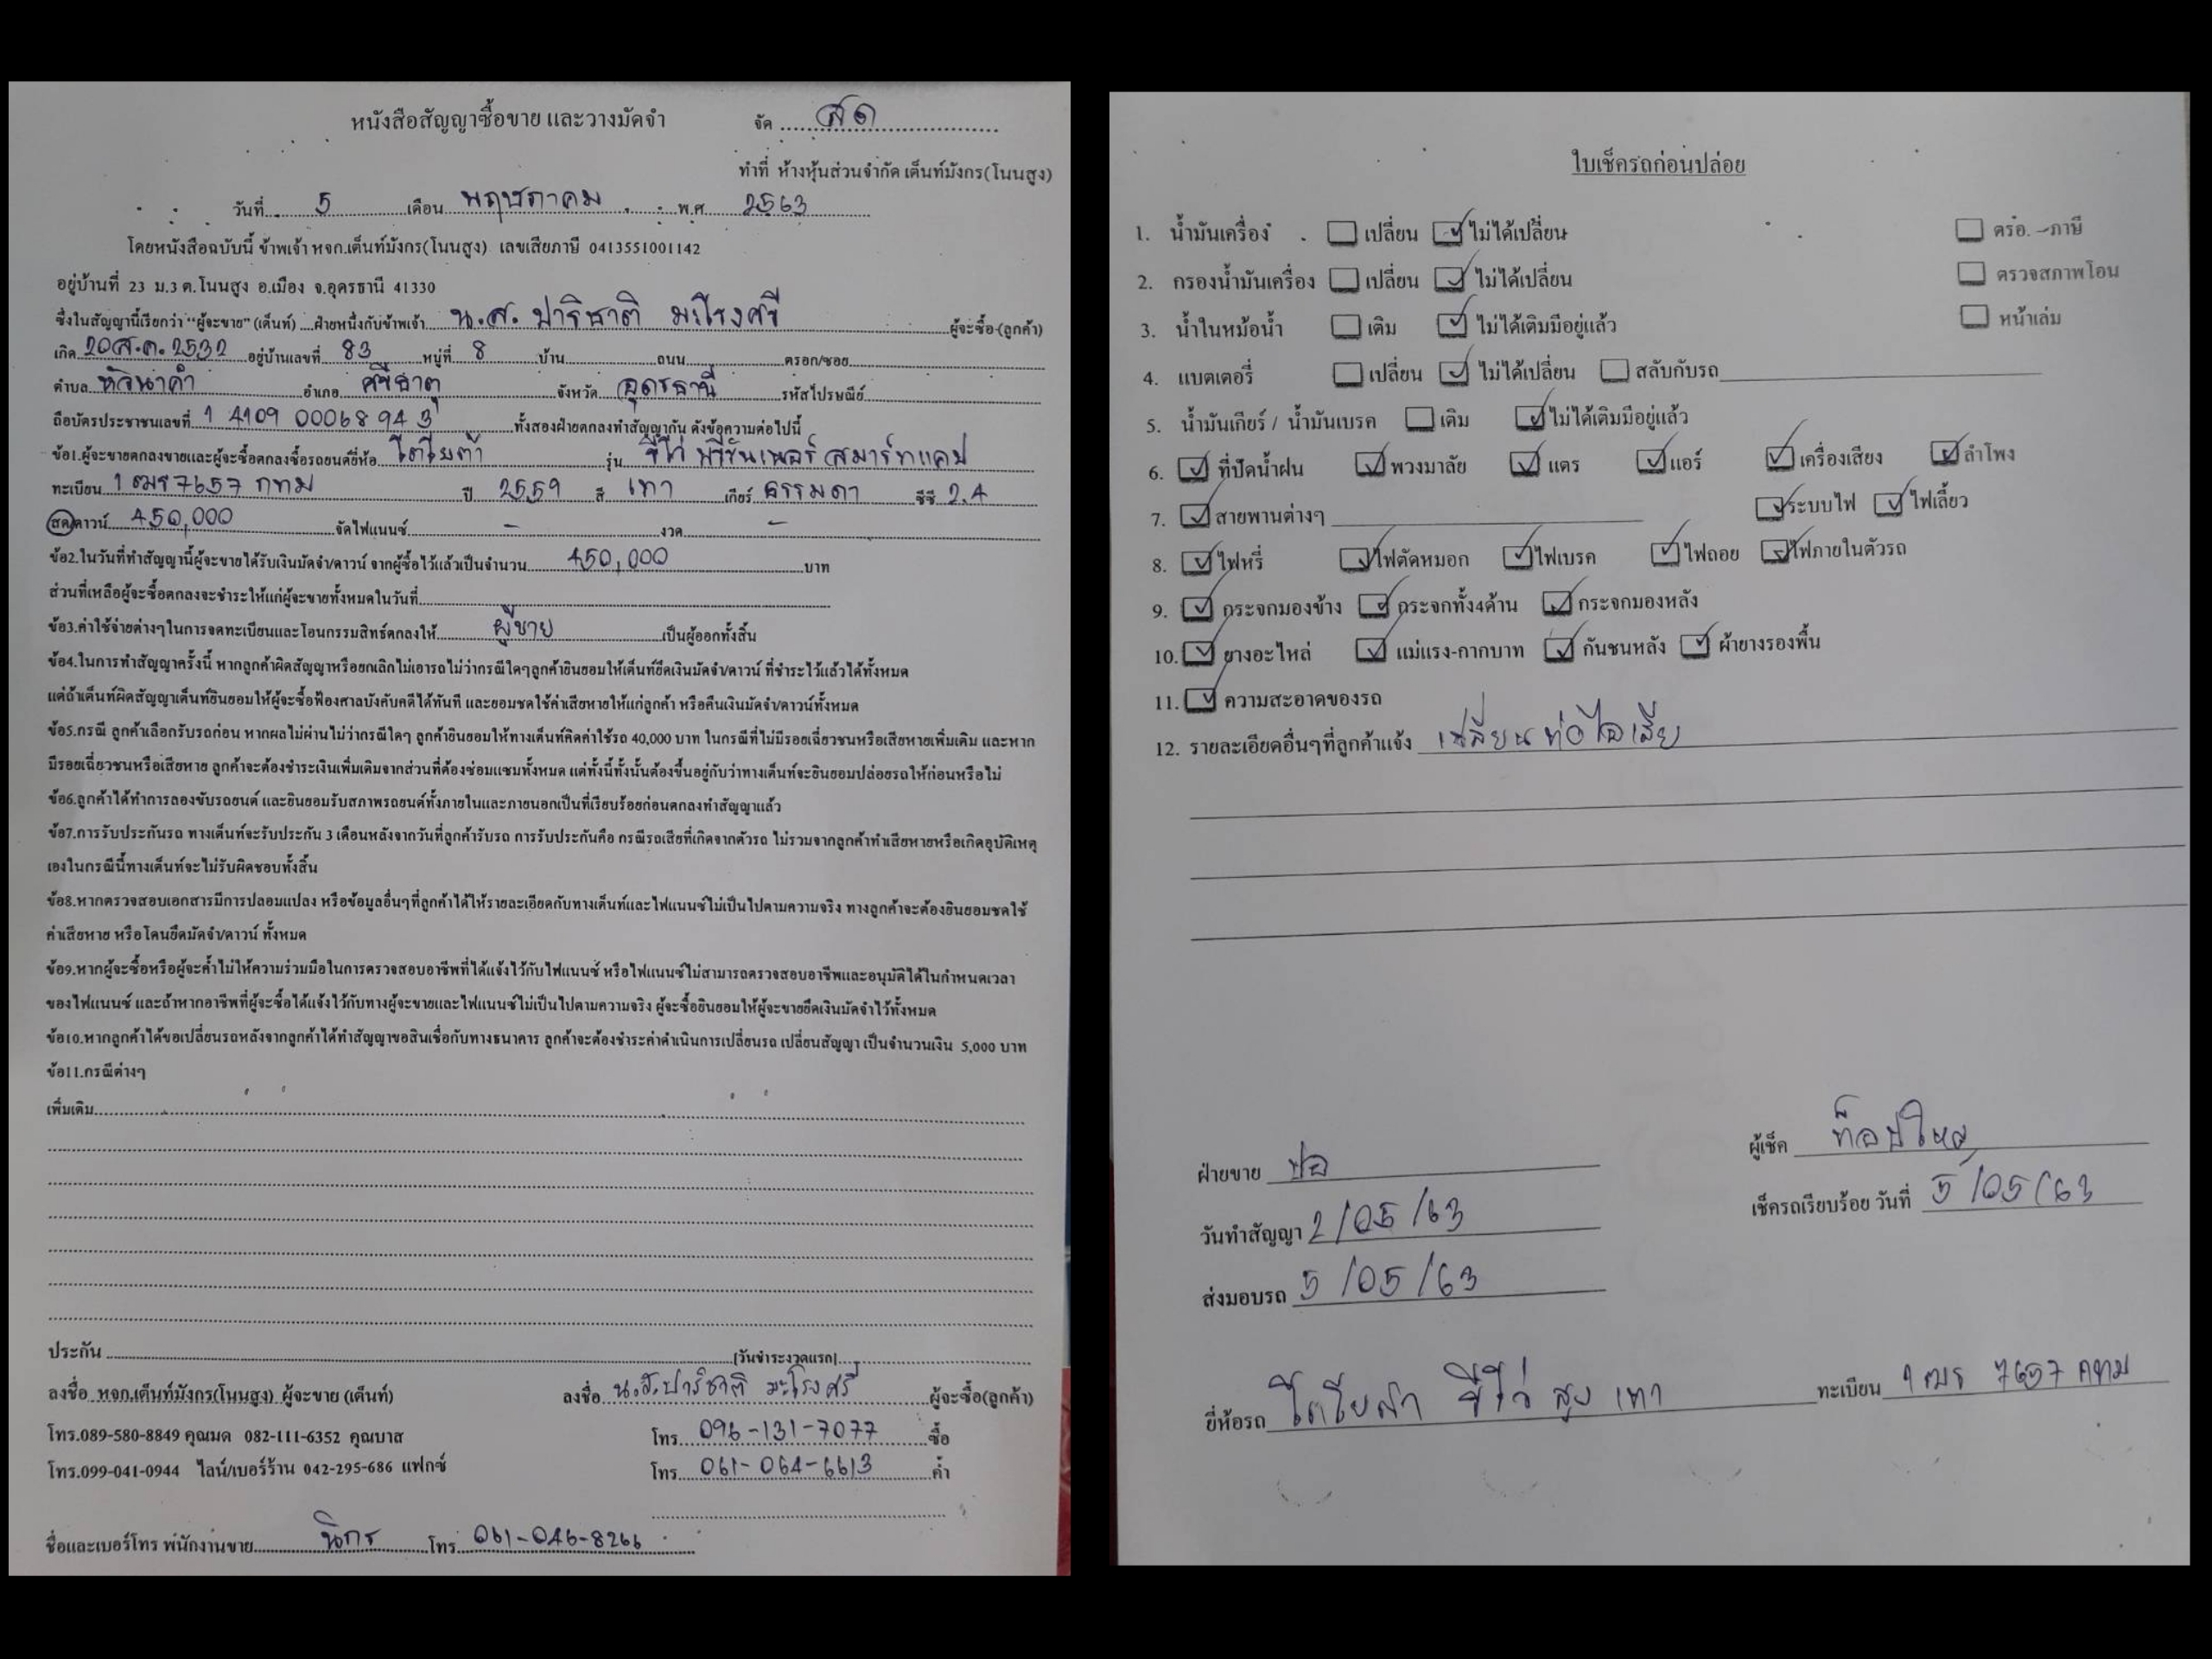 หนังสือสัญญาซื้อขาย และวางมัดจำ
จัด สด
ทำที่ ห้างหุ้นส่วนจำกัด เต็นท์มังกร(โนนสูง)
วันที่ 5 เดือน พฤษภาคม พ.ศ. 2563
โดยหนังสือฉบับนี้ ข้าพเจ้า หจก.เต็นท์มังกร(โนนสูง) เลขเสียภาษี 0413551001142
อยู่บ้านที่ 23 ม.3 ต.โนนสูง อ.เมือง จ.อุดรธานี 41330
ซึ่งในสัญญานี้เรียกว่า "ผู้จะขาย" (เต็นท์) ฝ่ายหนึ่งกับข้าพเจ้า น.ส. ปาริชาติ มะโรงศรี ผู้จะซื้อ(ลูกค้า)
เกิด 20 ส.ค. 2532 อยู่บ้านเลขที่ 83 หมู่ที่ 8 บ้าน ถนน ตรอก/ซอย
ตำบล หัวนาคำ อำเภอ ศรีธาตุ จังหวัด อุดรธานี รหัสไปรษณีย์
ถือบัตรประชาชนเลขที่ 1 4109 00068 94 3 ทั้งสองฝ่ายตกลงทำสัญญากัน ดังข้อความต่อไปนี้
ข้อ1.ผู้จะขายตกลงขายและผู้จะซื้อตกลงซื้อรถยนต์ยี่ห้อ โตโยต้า รุ่น รีโว่ พรีรันเนอร์ สมาร์ทแคป
ทะเบียน 1 ฒร 7657 กทม ปี 2559 สี เทา เกียร์ ธรรมดา ซีซี 2.4
สด/ดาวน์ 450,000 จัดไฟแนนซ์ - งวด -
ข้อ2.ในวันที่ทำสัญญานี้ผู้จะขายได้รับเงินมัดจำ/ดาวน์ จากผู้ซื้อไว้แล้วเป็นจำนวน 450,000 บาท
ส่วนที่เหลือผู้จะซื้อตกลงจะชำระให้แก่ผู้จะขายทั้งหมดในวันที่
ข้อ3.ค่าใช้จ่ายต่างๆในการจดทะเบียนและโอนกรรมสิทธ์ตกลงให้ ผู้ขาย เป็นผู้ออกทั้งสิ้น
ข้อ4.ในการทำสัญญาครั้งนี้ หากลูกค้าผิดสัญญาหรือยกเลิกไม่เอารถ ไม่ว่ากรณีใดๆลูกค้ายินยอมให้เต็นท์ยึดเงินมัดจำ/ดาวน์ ที่ชำระไว้แล้วได้ทั้งหมด
แต่ถ้าเต็นท์ผิดสัญญาเต็นท์ยินยอมให้ผู้จะซื้อฟ้องศาลบังคับคดีได้ทันที และยอมชดใช้ค่าเสียหายให้แก่ลูกค้า หรือคืนเงินมัดจำ/ดาวน์ทั้งหมด
ข้อ5.กรณี ลูกค้าเลือกรับรถก่อน หากผลไม่ผ่านไม่ว่ากรณีใดๆ ลูกค้ายินยอมให้ทางเต็นท์คิดค่าใช้รถ 40,000 บาท ในกรณีที่ไม่มีรอยเฉี่ยวชนหรือเสียหายเพิ่มเติม และหาก
มีรอยเฉี่ยวชนหรือเสียหาย ลูกค้าจะต้องชำระเงินเพิ่มเติมจากส่วนที่ต้องซ่อมแซมทั้งหมด แต่ทั้งนี้ทั้งนั้นต้องขึ้นอยู่กับว่าทางเต็นท์จะยินยอมปล่อยรถให้ก่อนหรือไม่
ข้อ6.ลูกค้าได้ทำการลองขับรถยนต์ และยินยอมรับสภาพรถยนต์ทั้งภายในและภายนอกเป็นที่เรียบร้อยก่อนตกลงทำสัญญาแล้ว
ข้อ7.การรับประกันรถ ทางเต็นท์จะรับประกัน 3 เดือนหลังจากวันที่ลูกค้ารับรถ การรับประกันคือ กรณีรถเสียที่เกิดจากตัวรถ ไม่รวมจากลูกค้าทำเสียหายหรือเกิดอุบัติเหตุ
เองในกรณีนี้ทางเต็นท์จะไม่รับผิดชอบทั้งสิ้น
ข้อ8.หากตรวจสอบเอกสารมีการปลอมแปลง หรือข้อมูลอื่นๆที่ลูกค้าได้ให้รายละเอียดกับทางเต็นท์และไฟแนนซ์ไม่เป็นไปตามความจริง ทางลูกค้าจะต้องยินยอมชดใช้
ค่าเสียหาย หรือโดนยึดมัดจำ/ดาวน์ ทั้งหมด
ข้อ9.หากผู้จะซื้อหรือผู้จะค้ำไม่ให้ความร่วมมือในการตรวจสอบอาชีพที่ได้แจ้งไว้กับไฟแนนซ์ หรือไฟแนนซ์ไม่สามารถตรวจสอบอาชีพและอนุมัติได้ในกำหนดเวลา
ของไฟแนนซ์ และถ้าหากอาชีพที่ผู้จะซื้อได้แจ้งไว้กับทางผู้จะขายและไฟแนนซ์ไม่เป็นไปตามความจริง ผู้จะซื้อยินยอมให้ผู้จะขายยึดเงินมัดจำไว้ทั้งหมด
ข้อ10.หากลูกค้าได้ขอเปลี่ยนรถหลังจากลูกค้าได้ทำสัญญาขอสินเชื่อกับทางธนาคาร ลูกค้าจะต้องชำระค่าดำเนินการเปลี่ยนรถ เปลี่ยนสัญญา เป็นจำนวนเงิน 5,000 บาท
ข้อ11.กรณีต่างๆ
เพิ่มเติม
ประกัน (วันชำระงวดแรก)
ลงชื่อ หจก.เต็นท์มังกร(โนนสูง) ผู้จะขาย (เต็นท์) ลงชื่อ น.ส.ปาริชาติ มะโรงศรี ผู้จะซื้อ(ลูกค้า)
โทร.089-580-8849 คุณมด 082-111-6352 คุณบาส โทร. 096-131-7077 ซื้อ
โทร.099-041-0944 ไลน์/เบอร์ร้าน 042-295-686 แฟกซ์ โทร. 061-064-6613 ค้ำ
ชื่อและเบอร์โทร พนักงานขาย นิกร โทร. 061-046-8266
ใบเช็ครถก่อนปล่อย
1. น้ำมันเครื่อง เปลี่ยน ไม่ได้เปลี่ยน ตรอ.-ภาษี
2. กรองน้ำมันเครื่อง เปลี่ยน ไม่ได้เปลี่ยน ตรวจสภาพโอน
3. น้ำในหม้อน้ำ เติม ไม่ได้เติมมีอยู่แล้ว หน้าเล่ม
4. แบตเตอรี่ เปลี่ยน ไม่ได้เปลี่ยน สลับกับรถ
5. น้ำมันเกียร์ / น้ำมันเบรค เติม ไม่ได้เติมมีอยู่แล้ว
6. ที่ปัดน้ำฝน พวงมาลัย แตร แอร์ เครื่องเสียง ลำโพง
7. สายพานต่างๆ ระบบไฟ ไฟเลี้ยว
8. ไฟหรี่ ไฟตัดหมอก ไฟเบรค ไฟถอย ไฟภายในตัวรถ
9. กระจกมองข้าง กระจกทั้ง4ด้าน กระจกมองหลัง
10. ยางอะไหล่ แม่แรง-กากบาท กันชนหลัง ผ้ายางรองพื้น
11. ความสะอาดของรถ
12. รายละเอียดอื่นๆที่ลูกค้าแจ้ง เปลี่ยนท่อไอเสีย
ฝ่ายขาย ปอ ผู้เช็ค
วันทำสัญญา 2/05/63 เช็ครถเรียบร้อย วันที่ 5/05/63
ส่งมอบรถ 5/05/63
ยี่ห้อรถ โตโยต้า รีโว่ สูง เทา ทะเบียน 1 ฒร 7657 กทม